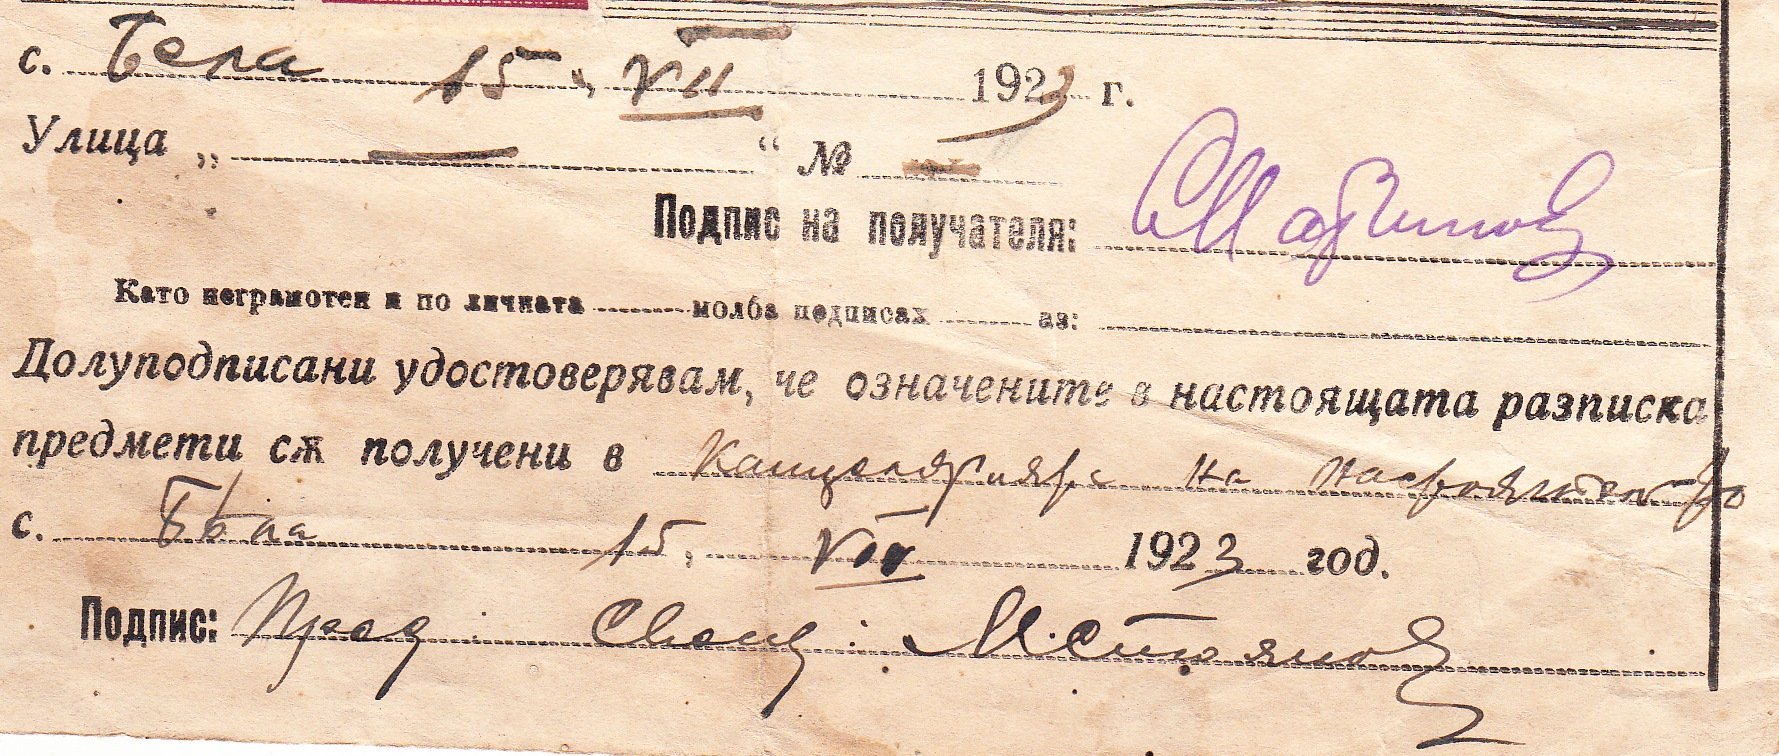 с. Бела 15, VII 1923 г.
Улица „ — “ № —
Подпис на получателя: С Маринов
Като неграмотен и по личната ........ молба подписах ........ аз:
Долуподписани удостоверявам, че означените в настоящата разписка
предмети сѫ получени в Канцеларията на
с. Бѣла 15, VII 1923 год.
Подпис: Пред. Свещ: М. Стоянов